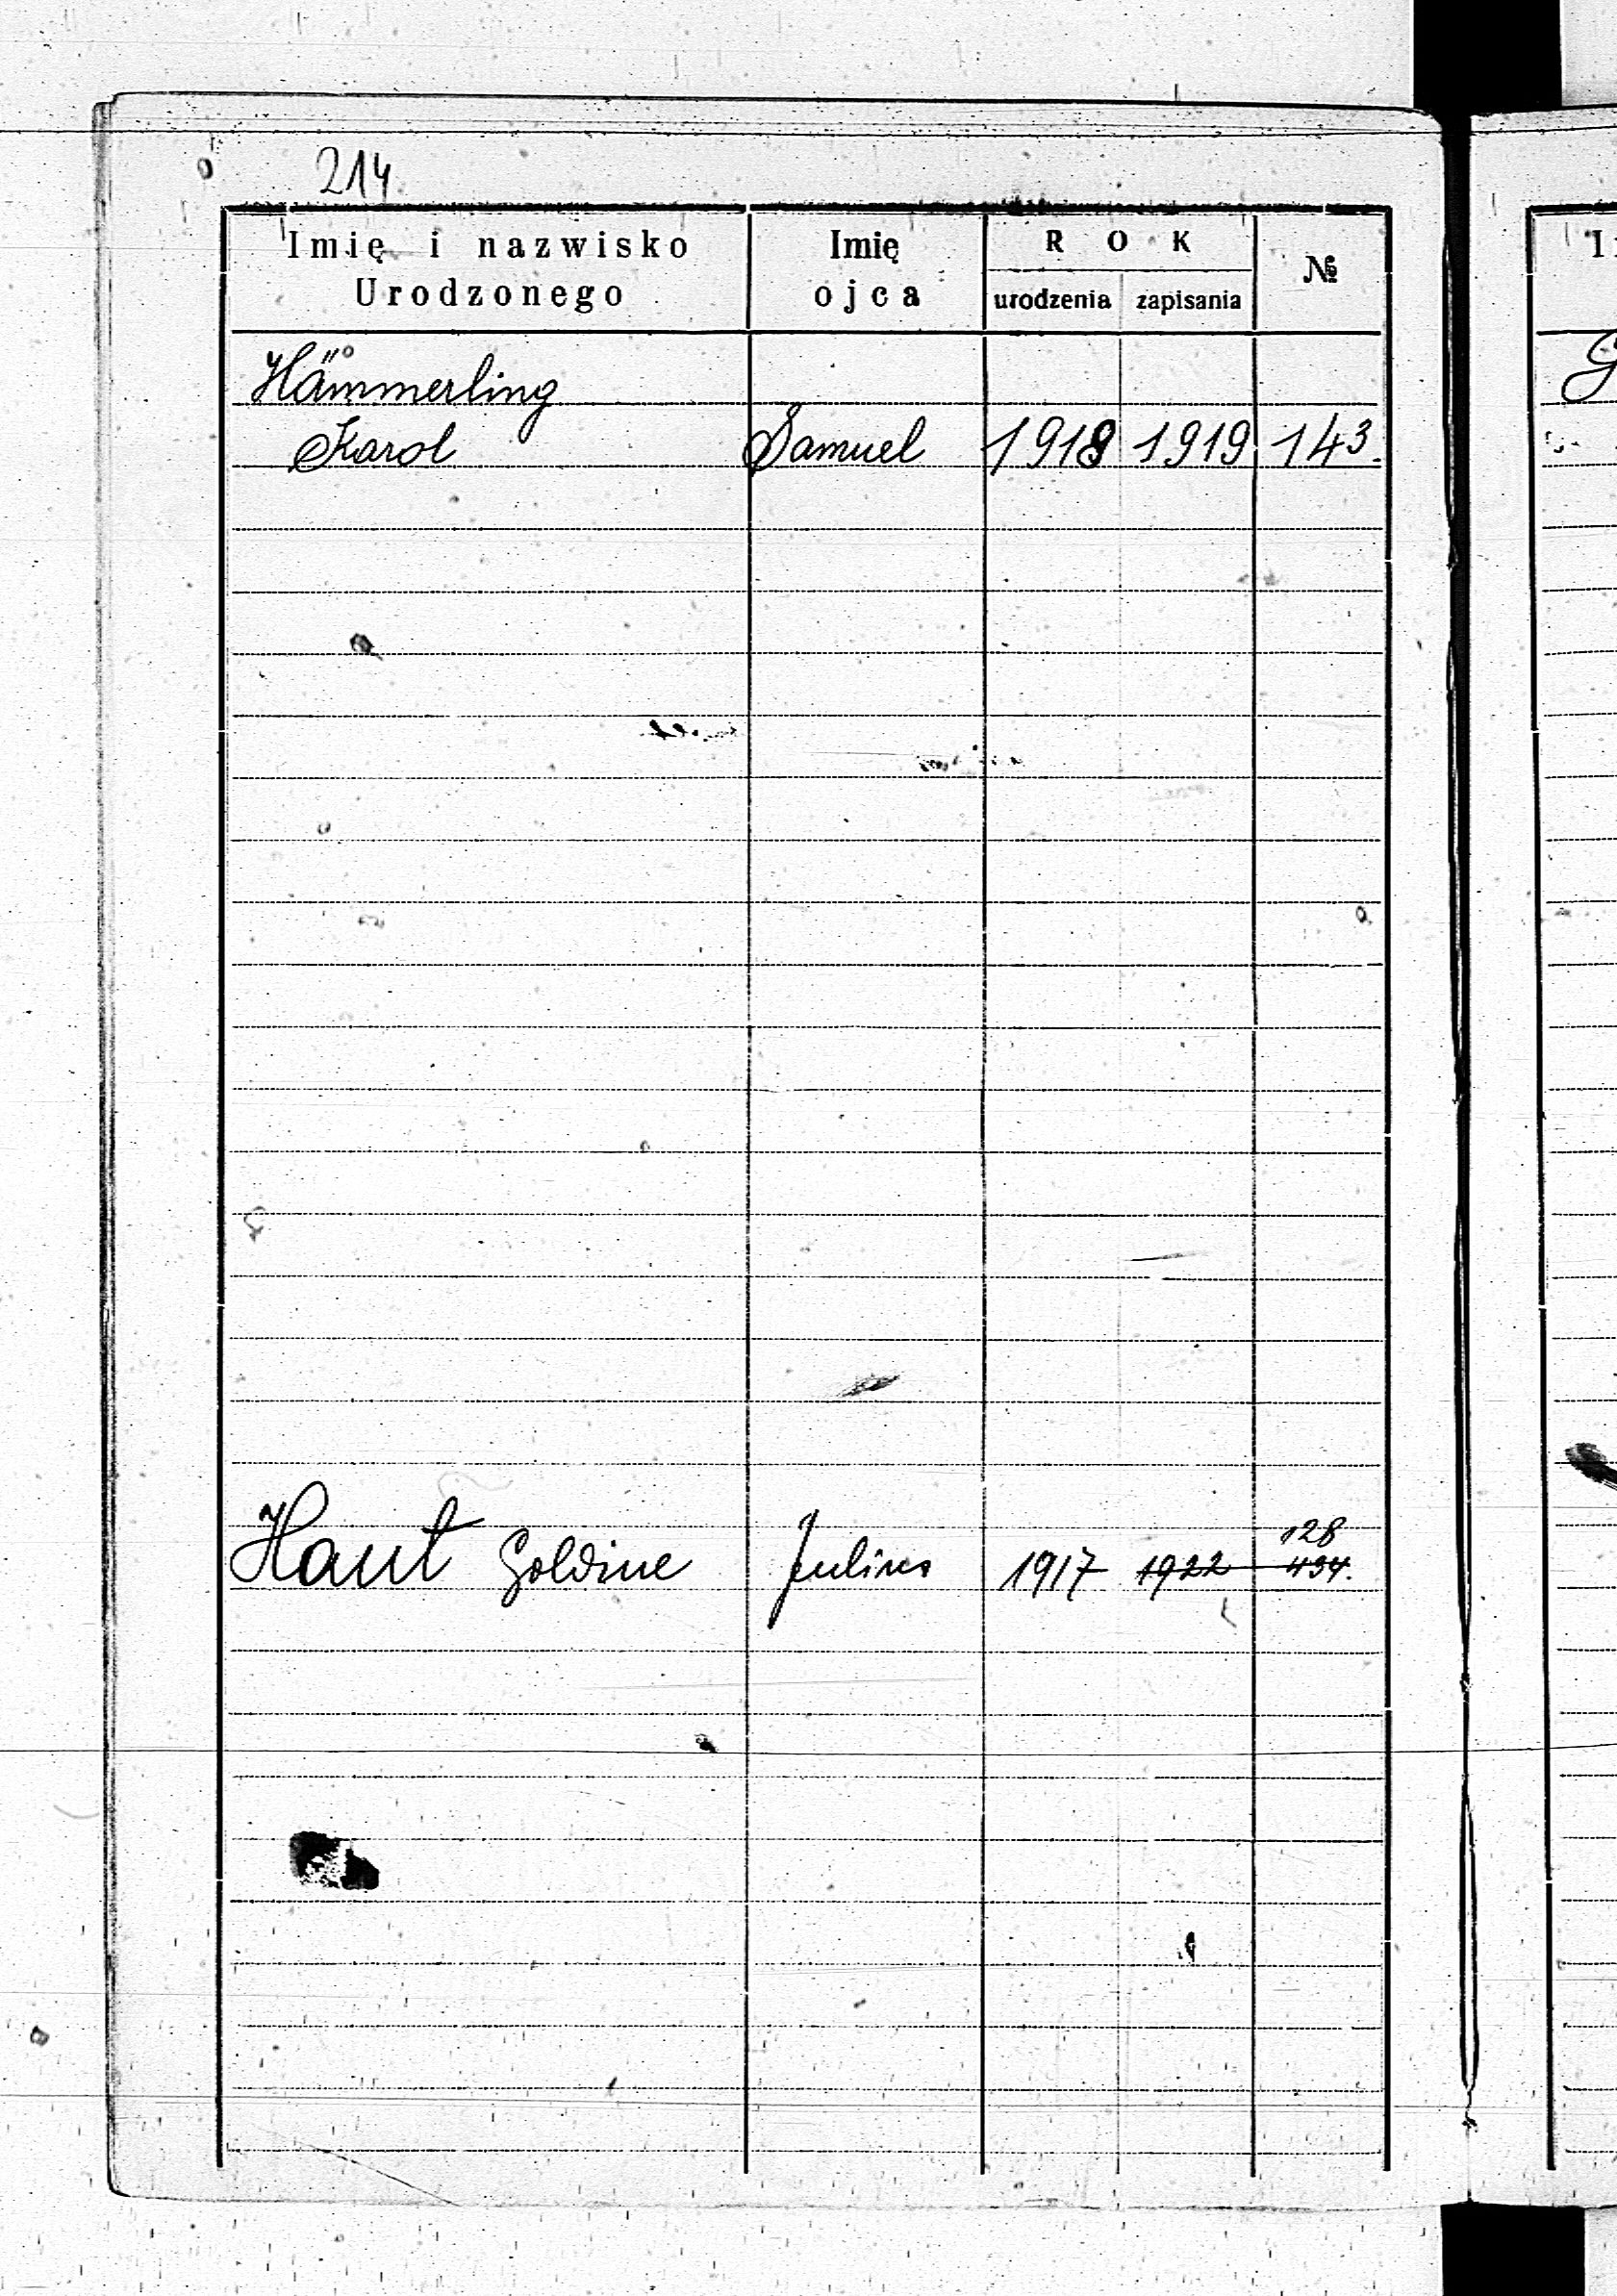 214
Imię i nazwisko Urodzonego Imię ojca ROK urodzenia zapisania №
Hämmerling
Karol Samuel 1918 1919 143.
128
Haut Goldine Julius 1917 1922 434.